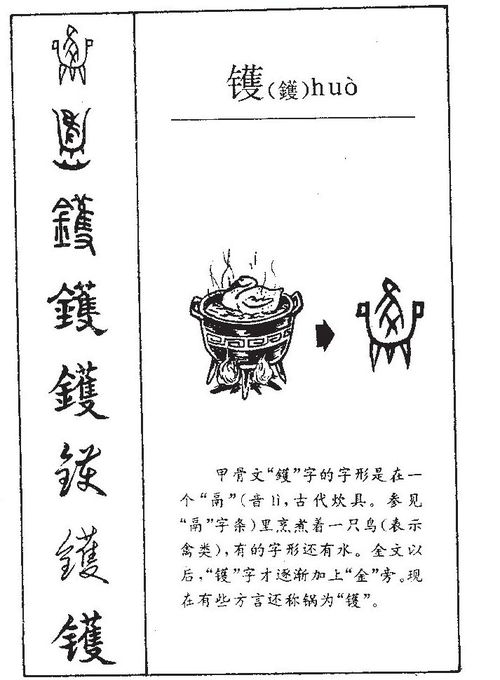 镬(鑊)huò
鑊
鑊
鑊
镬
鑊
鑊
甲骨文“鑊”字的字形是在一
个“鬲”(音lì,古代炊具。参见
“鬲”字条)里烹煮着一只鸟(表示
禽类),有的字形还有水。金文以
后,“镬”字才逐渐加上“金”旁。现
在有些方言还称锅为“镬”。